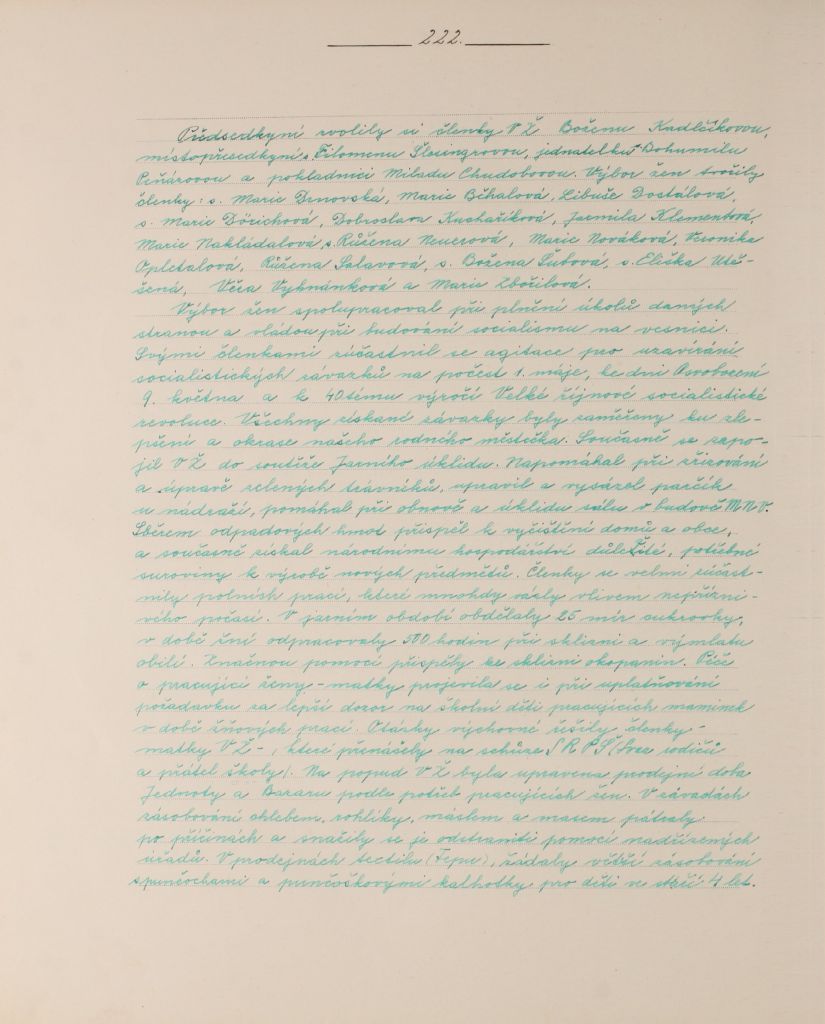 222.
Předsedkyní zvolily si členky VŽ Boženu Kadlčíkovou,
místopředsedkyní s. Filomenu Šlesingrovou, jednatelku Bohumilu
Peňázovou a pokladnicí Miladu Chudobovou. Výbor žen tvořily
členky: s. Marie Drnovská, Marie Běhalová, Libuše Dostálová,
s. Marie Dörichová, Dobroslava Kuchaříková, Jarmila Klementová,
Marie Nakládalová, s. Růžena Neuerová, Marie Nováková, Veronika
Opletalová, Růžena Salavová, s. Božena Šubová, s. Eliška Utě-
šená, Věra Vyhnánková a Marie Zbořilová.
Výbor žen spolupracoval při plnění úkolů daných
stranou a vládou při budování socialismu na vesnici.
Svými členkami zúčastnil se agitace pro uzavírání
socialistických závazků na počest 1. máje, ke dni Osvobození
9. května a k 40tému výročí Velké říjnové socialistické
revoluce. Všechny získané závazky byly zaměřeny ku zle-
pšení a okrase našeho rodného městečka. Současně se zapo-
jil VŽ do soutěže Jarního úklidu. Napomáhal při zřizování
a úpravě zelených trávníků, upravil a vysázel parčík
u nádraží, pomáhal při obnově a úklidu sálu v budově MNV.
Sběrem odpadových hmot přispěl k vyčištění domů a obce,
a současně získal národnímu hospodářství důležité, potřebné
suroviny k výrobě nových předmětů. Členky se velmi zúčast-
nily polních prací, které mnohdy vázly vlivem nepřízni-
vého počasí. V jarním období obdělaly 25 měr cukrovky,
v době žní odpracovaly 500 hodin při sklizni a výmlatu
obilí. Značnou pomocí přispěly ke sklizni okopanin. Péče
o pracující ženy - matky projevila se i při uplatňování
požadavku za lepší dozor na školní děti pracujících maminek
v době žňových prací. Otázky výchovné řešily členky -
matky VŽ -, které přenášely na schůze SRPŠ (Svaz rodičů
a přátel školy). Na popud VŽ byla upravena prodejní doba
Jednoty a Bazaru podle potřeb pracujících žen. V závadách
zásobování chlebem, rohlíky, máslem a masem pátraly
po příčinách a snažily se je odstraniti pomocí nadřízených
úřadů. V prodejnách textilu (Tepu), žádaly větší zásobování
punčochami a punčoškovými kalhotky pro děti ve stáří 4 let.